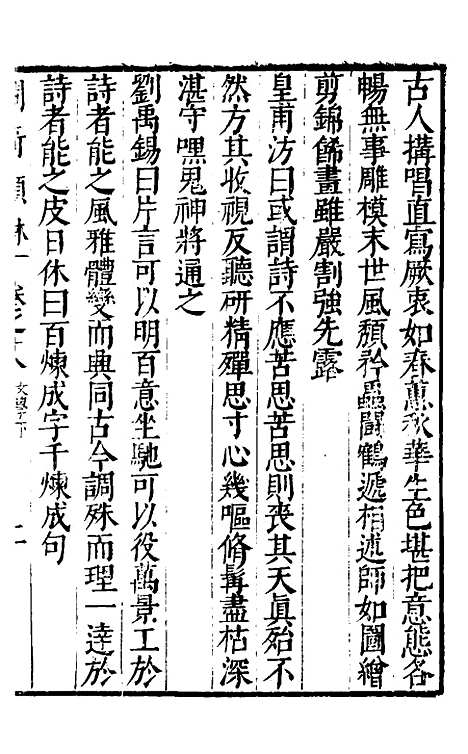 古人搆唱直寫厥衷如春蕙秋華生色堪把意態各
暢無事雕模末世風頹矜蟲鬪鶴遞相述師如圖繒
剪錦餙畫雖嚴割強先露
皇甫汸曰或謂詩不應苦思苦思則喪其天眞殆不
然方其收視反聽研精殫思寸心幾嘔脩髯盡枯深
湛守嘿鬼神將通之
劉禹錫曰片言可以明百意坐馳可以役萬景工於
詩者能之風雅體變而興同古今調殊而理一達於
詩者能之皮日休曰百煉成字千煉成句
卷之十八